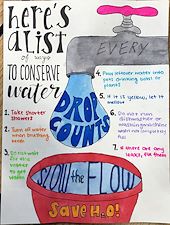 here's
a list
of ways
TO CONSERVE
water
EVERY
DROP
COUNTS
1. Take shorter
showers
2. Turn off water
when brushing
teeth
3. Do not wait
for
water
to get
4. Pour leftover water into
pets drinking bowl or
plants
5. If it is yellow, let it
mellow
6. Do not run
dishwasher or
washing machine
when not completely
full
7. If there are any
leaks, fix them
SLOW the FLOW
Save H2O!